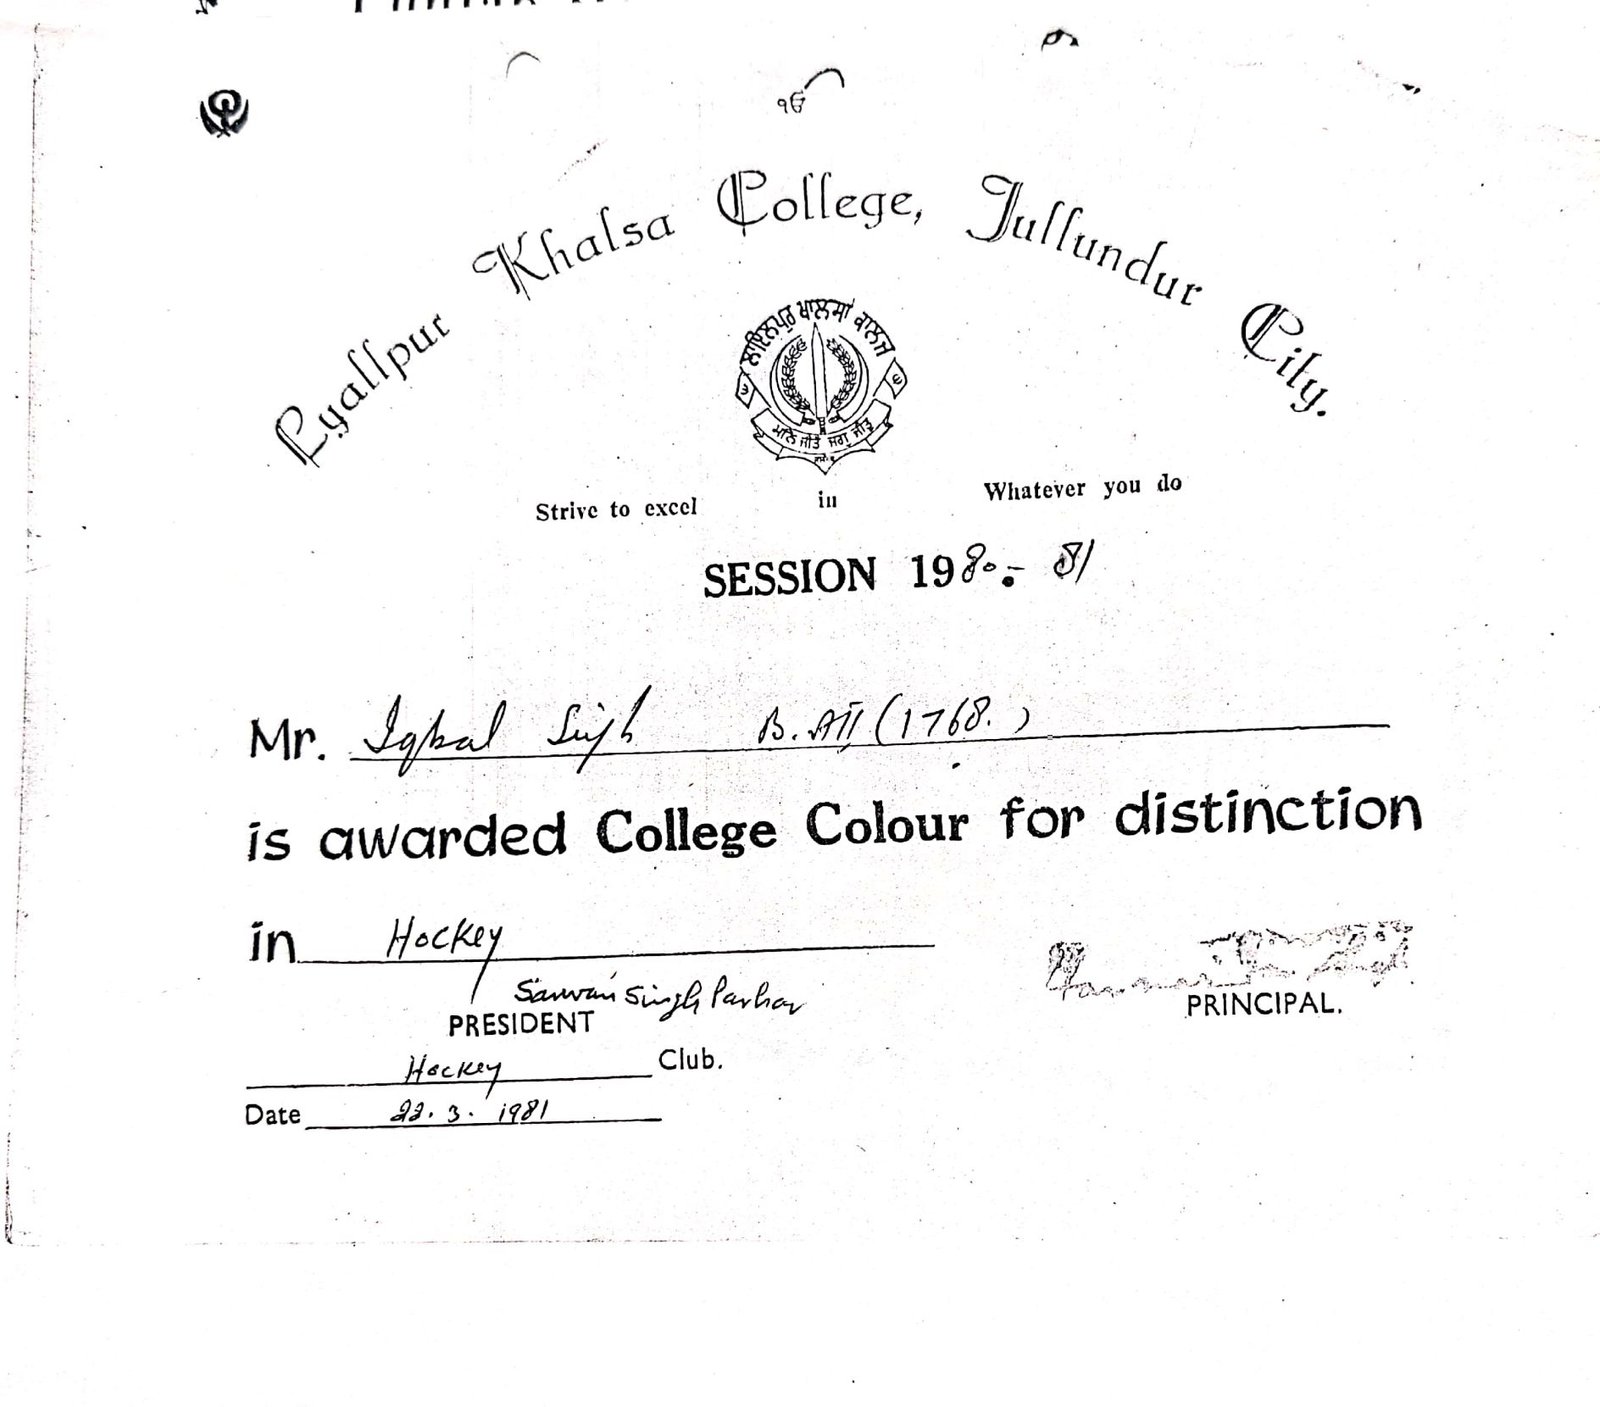 ੴ
Lyallpur Khalsa College, Jullundur City.
ਲਾਇਲਪੁਰ ਖਾਲਸਾ ਕਾਲਜ
ਮਨਿ ਜੀਤੈ ਜਗੁ ਜੀਤੁ
Strive to excel in Whatever you do
SESSION 1980-81
Mr. Iqbal Singh B.A II (1768.)
is awarded College Colour for distinction
in Hockey
Sarwan Singh Parhar
PRESIDENT PRINCIPAL.
Hockey Club.
Date 22.3.1981